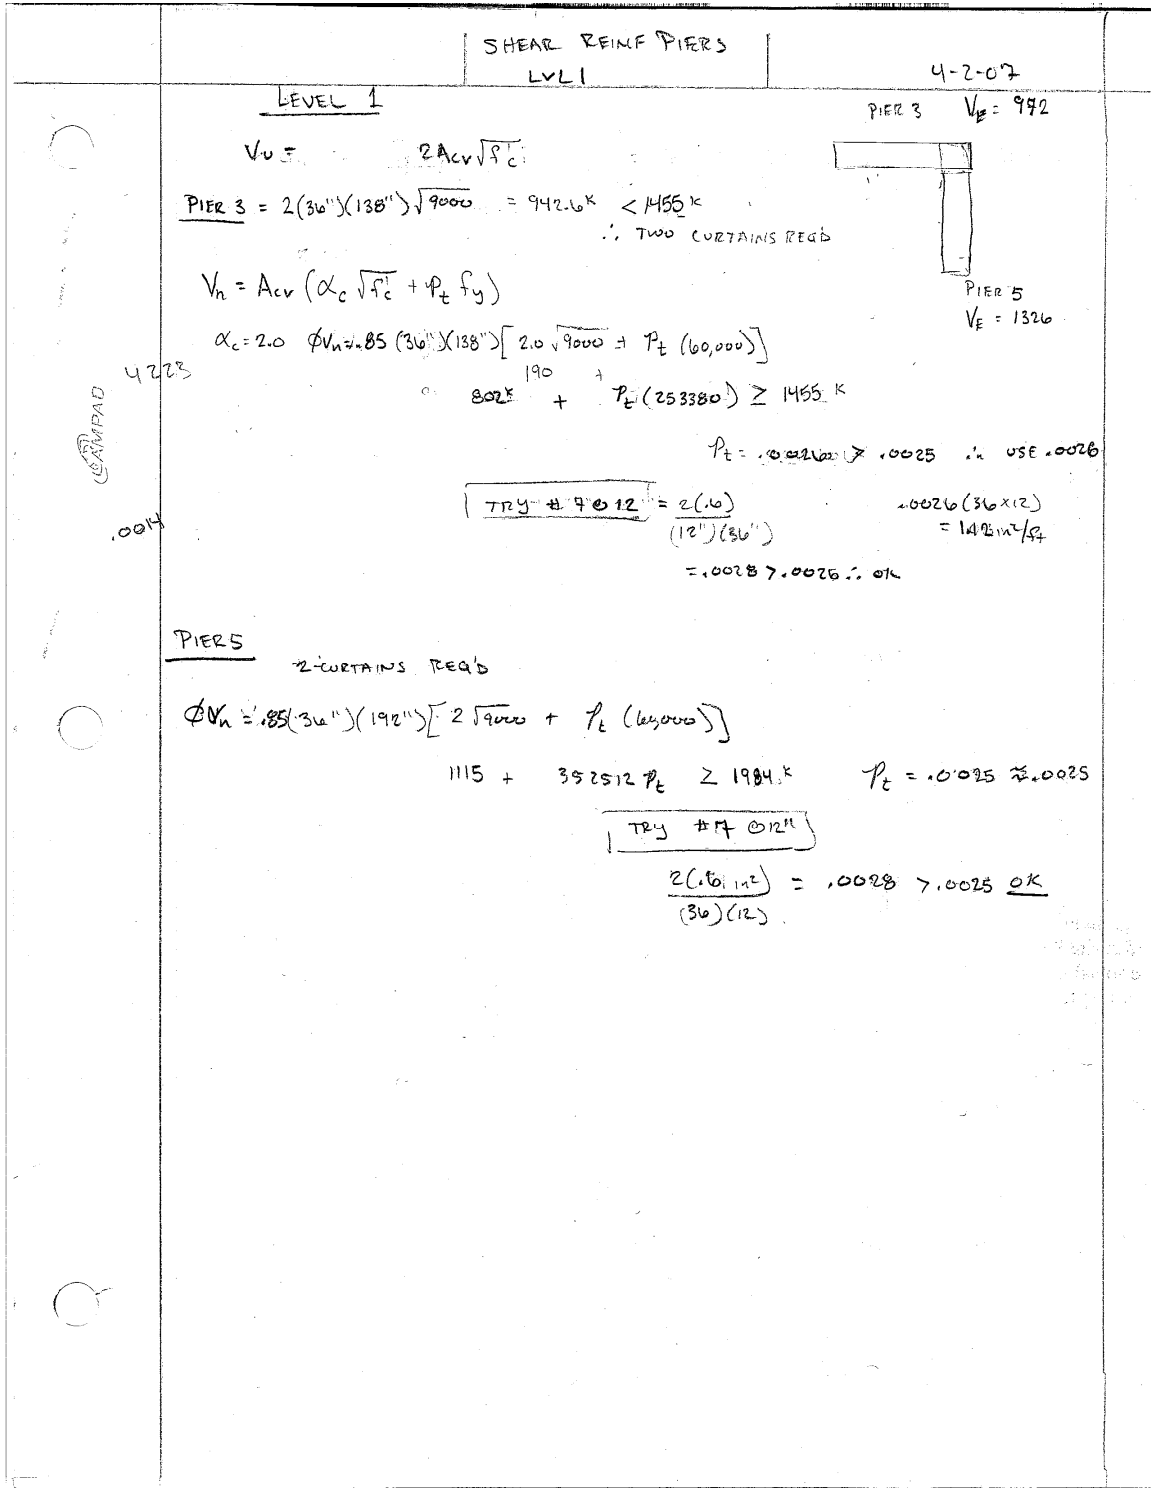 SHEAR REINF PIERS
LVL 1
4-2-07
LEVEL 1
PIER 3 V_E = 972
Vu = 2Acv√f'c
PIER 3 = 2(36")(138")√9000 = 942.6K < 1455K
∴ TWO CURTAINS REQ'D
PIER 5
V_E = 1326
Vn = Acv (αc √f'c + Pt fy)
αc = 2.0 ϕVn = .85 (36")(138")[2.0 √9000 + Pt (60,000)]
4223
190 +
802K + Pt (253380) ≥ 1455 K
CAMPAD
Pt = .0026 > .0025 ∴ USE .0026
TRY #7@12 = 2(.6) / (12")(36")
.0026(36x12)
.0014
= in²/ft
= .0028 > .0026 ∴ OK
PIER 5
2-CURTAINS REQ'D
ϕVn = .85(36")(192")[2√9000 + Pt (60,000)]
1115 + 352512 Pt ≥ 1984 K Pt = .0025 ≈ .0025
TRY #7 @12"
2(.6 in²) / (36)(12) = .0028 > .0025 OK